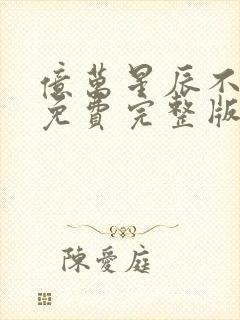 億萬星辰不
免費完整版
陳愛庭